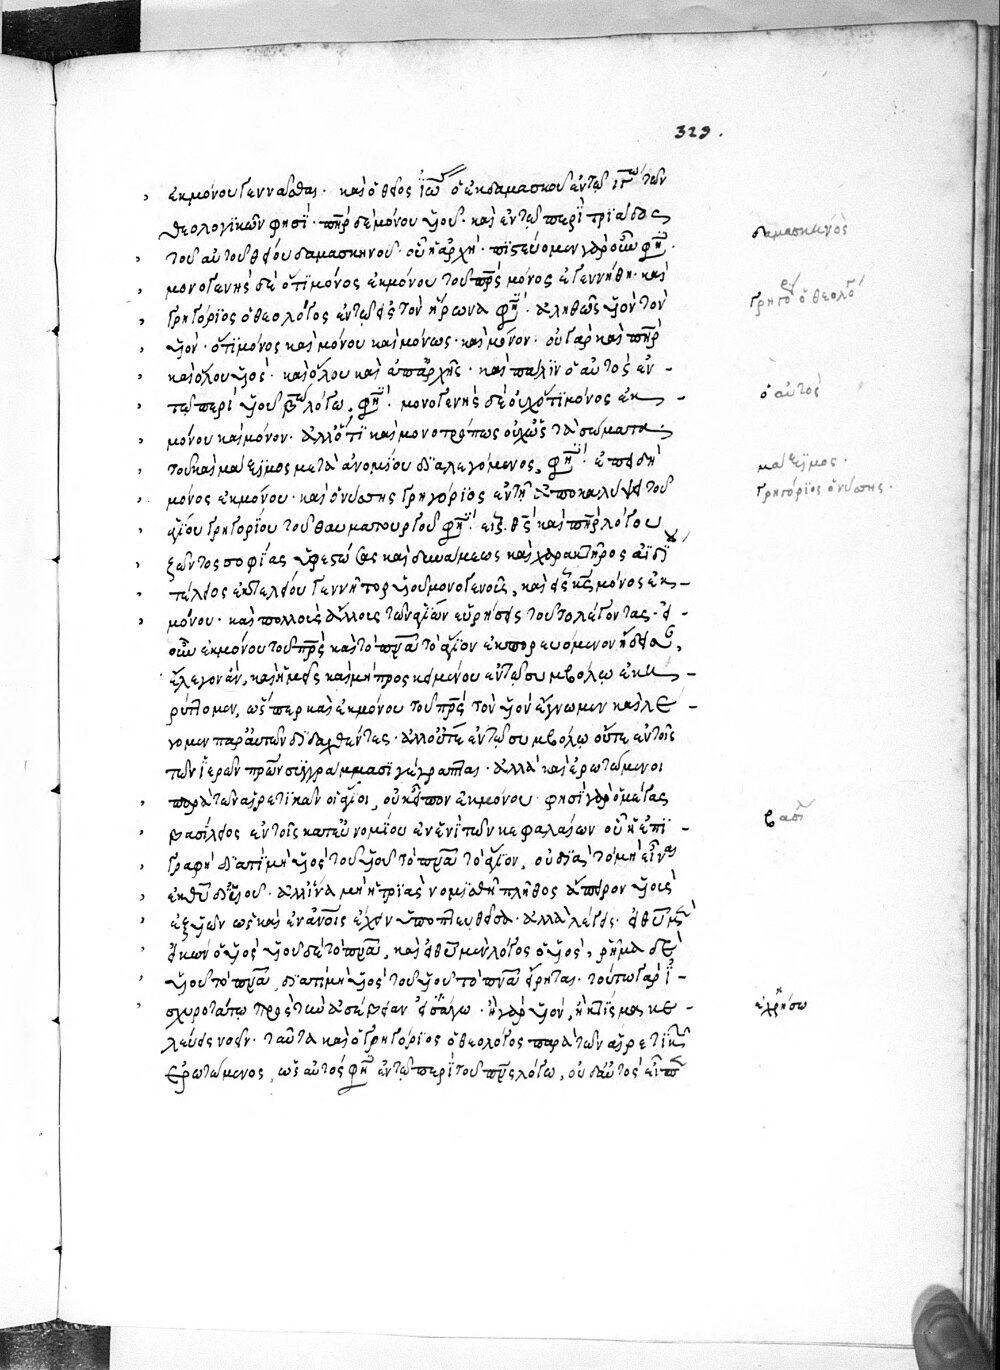 329.
ἐκ μόνου γεννᾶσθαι· καὶ ὁ θεῖος ἰω ὁ ἐκ δαμασκοῦ ἐν τῷ τῶν
θεολογικῶν φησὶ· πηρ δὲ μόνου υἱοῦ· καὶ ἐν τῷ περὶ τριάδος
τοῦ αὐτοῦ θείου δαμασκηνοῦ· οὗ ἡ ἀρχή· πιστεύομεν φη·
μονογενὴς δὲ ὅτι μόνος ἐκ μόνου τοῦ πρς μόνος ἐγεννήθη· καὶ
γρηγόριος ὁ θεολόγος ἐν τῷ εἰς τὸν ἥρωνα φη· ἀληθῶς υἱὸν τὸν
υἱόν· ὅτι μόνος καὶ μόνου καὶ μόνως· καὶ μόνον· οὐ γὰρ καὶ πηρ
καὶ ὅλου υἱὸς· καὶ ὅλου καὶ ἀπαρχῆς· καὶ πάλιν ὁ αὐτὸς ἐν
τῷ περὶ υἱοῦ β λόγω, φη· μονογενὴς δὲ οὐχ ὅτι μόνος ἐκ
μόνου καὶ μόνον· ἀλλ' ὅτι καὶ μονοτρόπως οὐχ ὡς τὰ σώματα·
τοῦ καὶ μάξιμος μετὰ ἀνομίου διαλεγόμενος, φη· ἐπειδὴ
μόνος ἐκ μόνου· καὶ ὁ νύσσης γρηγόριος ἐν τῇ ἀποκαλύψει τοῦ
ἁγίου γρηγορίου τοῦ θαυματουργοῦ φη· εἷς θς καὶ πηρ λόγου
ζῶντος σοφίας ὑφεστώσης καὶ δυνάμεως καὶ χαρακτῆρος ἀϊδί
τέλειος ἐκ τελείου γεννήτωρ υἱοῦ μονογενοῦς, καὶ εἷς κς μόνος ἐκ
μόνου· καὶ πολλοὺς ἄλλους τῶν ἁγίων εὑρήσεις τοῦτο λέγοντας· εἰ
οὖν ἐκ μόνου τοῦ πρς καὶ τὸ πνα τὸ ἅγιον ἐκπορευόμενον ᾔδεισαν,
ἔλεγον ἄν, καὶ ἡμεῖς καὶ μὴ προσκείμενον ἐν τῷ συμβόλω ἐκη
ρύττομεν, ὥσπερ καὶ ἐκ μόνου τοῦ πρς τὸν υἱὸν ἔγνωμεν καὶ λέ
γομεν παρ' αὐτῶν διδαχθέντες· ἀλλ' οὔτε ἐν τῷ συμβόλω οὔτε ἐν τοῖς
τῶν ἱερῶν πρων συγγράμμασι γέγραπται· ἀλλὰ καὶ ἐρωτώμενοι
παρὰ τῶν αἱρετικῶν οἱ ἅγιοι, οὐκ εἶπον ἐκ μόνου· φησὶ γὰρ ὁ μέγας
βασίλειος ἐν τοῖς κατ' εὐνομίου ἐν ἑνὶ τῶν κεφαλαίων οὗ ἡ ἐπι
γραφὴ διατί μὴ υἱὸς τοῦ υἱοῦ τὸ πνα τὸ ἅγιον, οὐ διὰ τὸ μὴ εἶναι
ἐκ θυ δι' υἱοῦ· ἀλλ' ἵνα μὴ ἡ τριὰς νομισθῆ πλῆθος ἄπειρον υἱοὺς
ἐξ υἱῶν ὡς καὶ ἐν ἀνοις ἔχειν ὑποπτευθεῖσα· ἀλλὰ λέγεις· εἰ θυ μὲν
εἰκὼν ὁ υἱὸς υἱοῦ δὲ τὸ πνα, καὶ εἰ θυ μὲν λόγος ὁ υἱός, ῥῆμα δὲ
υἱοῦ τὸ πνα, διατί μὴ υἱὸς τοῦ υἱοῦ τὸ πνα εἴρηται· τούτω γὰρ ἰ
σχυροτάτω πρὸς τὴν ἀσέβειαν ἢ γὰρ υἱὸν, ἢ κτίσμα κε
λεύεις νοεῖν· ταῦτα καὶ ὁ γρηγόριος ὁ θεολόγος παρὰ τῶν αἱρετικ
ἐρωτώμενος, ὡς αὐτός φη ἐν τῷ περὶ τοῦ πνς λόγω, οὐδ' αὐτὸς εἶπ
δαμασκηνὸς
γρηγο ὁ θεολο
ὁ αὐτὸς
μάξιμος·
γρηγόριος ὁ νύσσης·
βασι